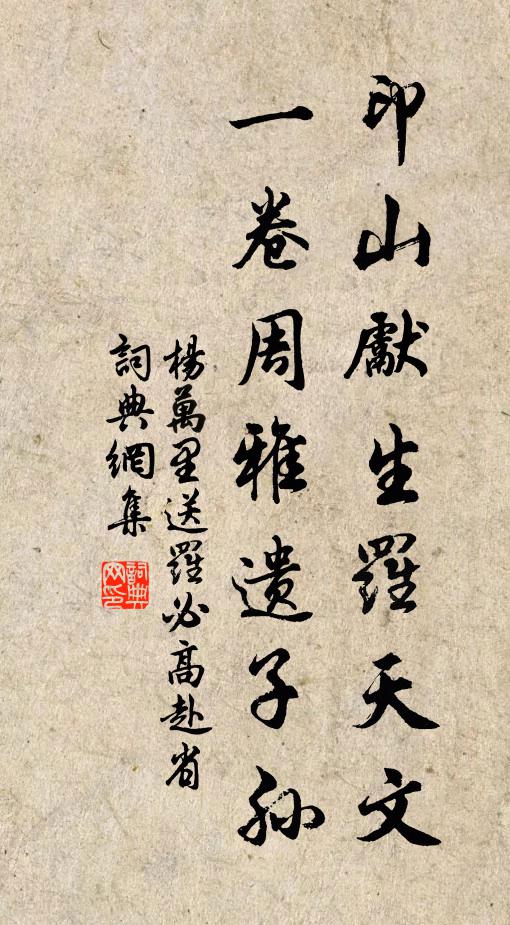 印山獻生羅天文
一卷周雅遺子孫
楊萬里送羅必高赴省
詞典網集
詞典網印